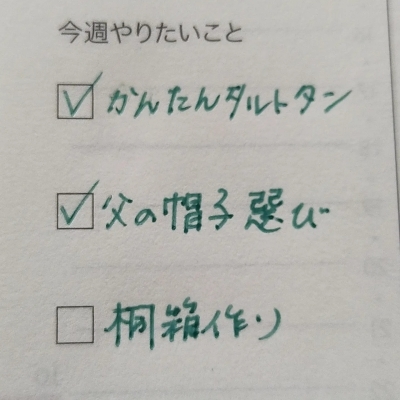 今週やりたいこと
☑ かんたんタルトタン
☑ 父の帽子選び
☐ 桐箱作り